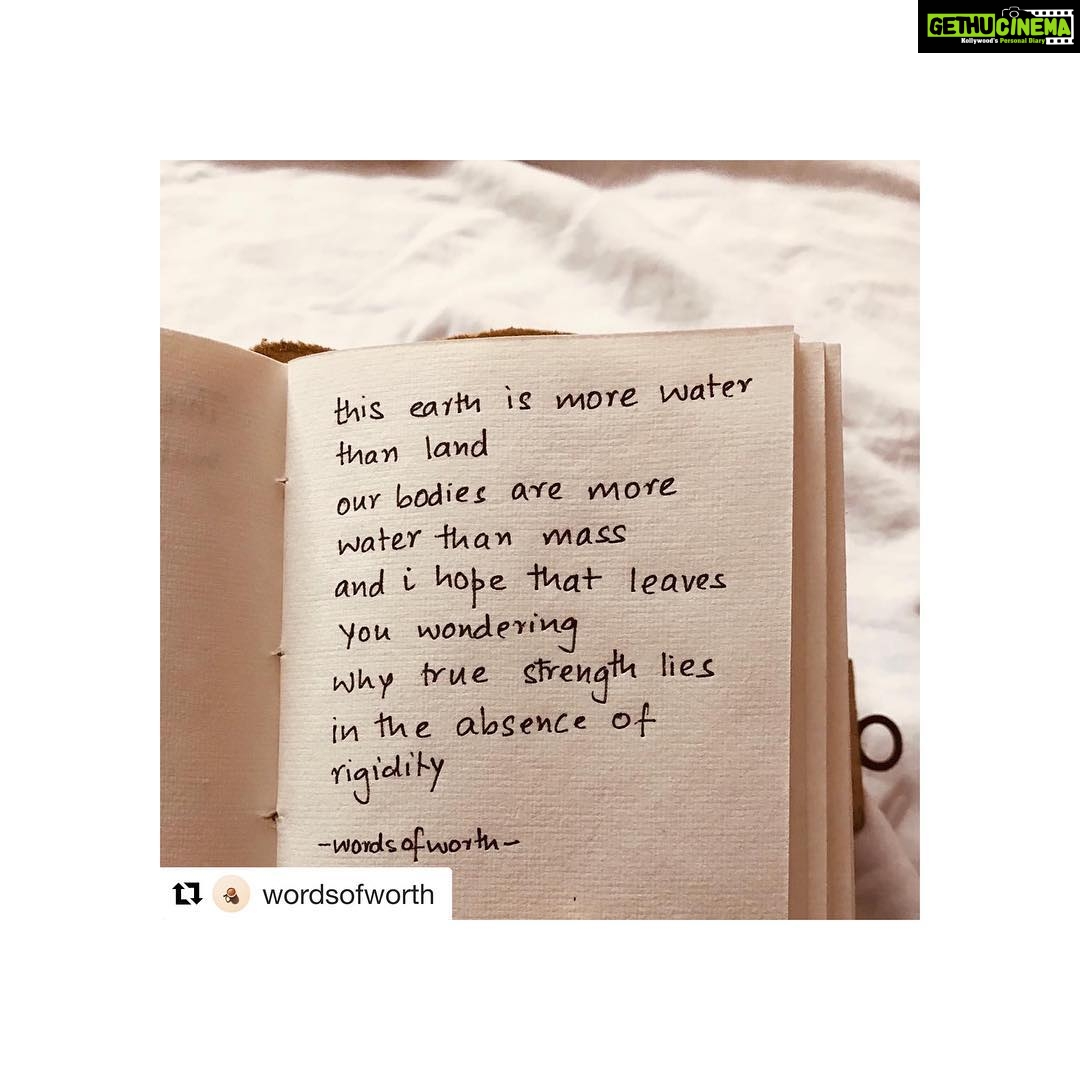 GETHUCINEMA
Kollywood's Personal Diary
this earth is more water
than land
our bodies are more
water than mass
and i hope that leaves
you wondering
why true strength lies
in the absence of
rigidity
-wordsofworth-
wordsofworth